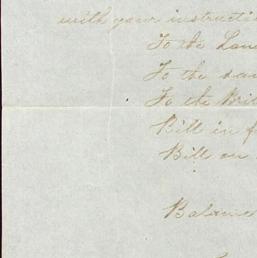 with your instructi
To the Lan
To the
To the
Bill in f
Bill on
Balance